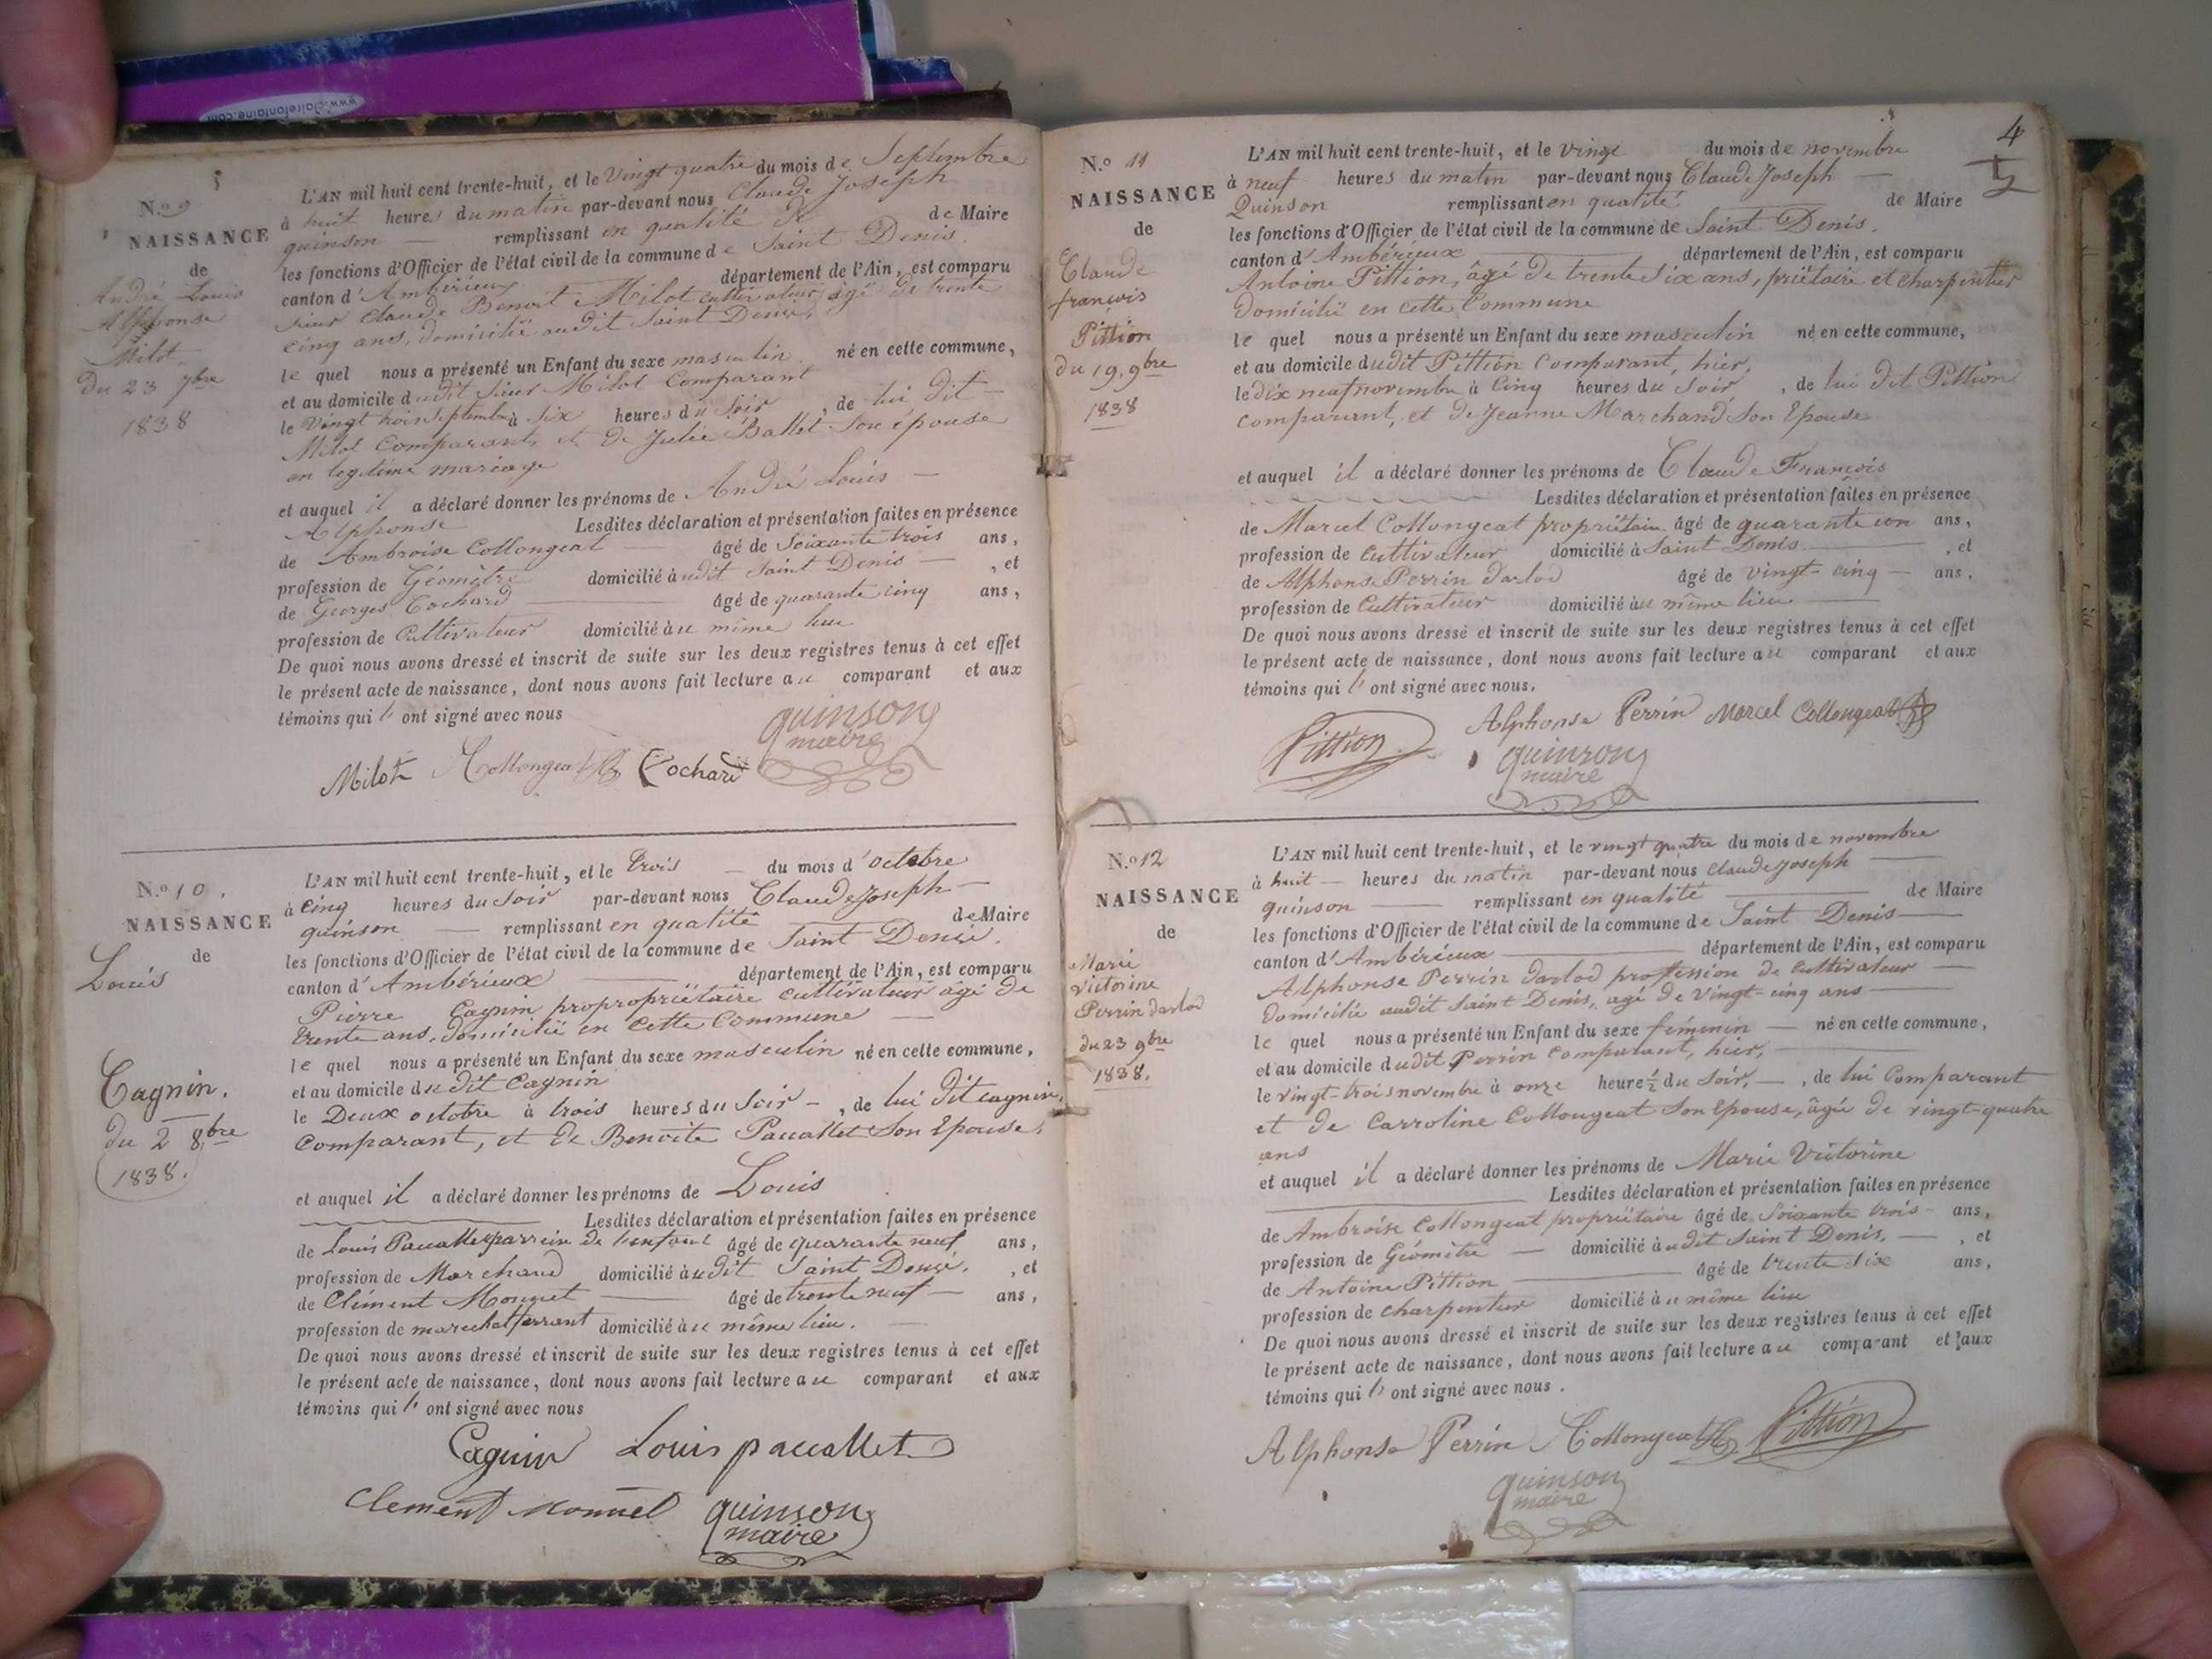 www.clairefontaine.com
N.o 9
NAISSANCE
de
André Louis
Alphonse
Milot
du 23 7bre
1838
L'AN mil huit cent trente-huit, et le Vingt quatre du mois de Septembre
à huit heures du matin par-devant nous Claude Joseph
quinson remplissant en qualité de de Maire
les fonctions d'Officier de l'état civil de la commune de Saint Denis.
canton d'Ambérieux département de l'Ain, est comparu
sieur Claude Benoit Milot cultivateur âgé de trente
cinq ans, domicilié audit Saint Denis,
le quel nous a présenté un Enfant du sexe masculin né en cette commune,
et au domicile dudit sieur Milot Comparant
le Vingt trois Septembre à Six heures du Soir, de lui dit
Milot Comparant, et de Julie Ballet Son épouse
en legitime mariage
et auquel il a déclaré donner les prénoms de André Louis
Alphonse Lesdites déclaration et présentation faites en présence
de Ambroise Collongeat âgé de Soixante trois ans,
profession de Géomètre domicilié àudit Saint Denis, et
de Georges Cochard âgé de quarante cinq ans,
profession de Cultivateur domicilié àu même lieu
De quoi nous avons dressé et inscrit de suite sur les deux registres tenus à cet effet
le présent acte de naissance, dont nous avons fait lecture au comparant et aux
témoins qui l' ont signé avec nous
quinson
maire
Milot Collongeat Cochard
N.o 10.
NAISSANCE
de
Louis
Cagnin.
du 2 8bre
1838.
L'AN mil huit cent trente-huit, et le trois du mois d'octobre
à Cinq heures du Soir par-devant nous Claude Joseph
quinson remplissant en qualité de Maire
les fonctions d'Officier de l'état civil de la commune de Saint Denis.
canton d'Ambérieux département de l'Ain, est comparu
Pierre Cagnin propropriétaire cultivateur âgé de
trente ans, domicilié en Cette Commune
le quel nous a présenté un Enfant du sexe masculin né en cette commune,
et au domicile dudit Cagnin
le Deux octobre à trois heures du Soir, de lui dit cagnin,
Comparant, et de Benoite Pauallet Son Epouse,
et auquel il a déclaré donner les prénoms de Louis
Lesdites déclaration et présentation faites en présence
de Louis Pauallet parrein de l'enfant âgé de quarante neuf ans,
profession de Marchand domicilié àudit Saint Denis, et
de Clément Monnet âgé de trente neuf ans,
profession de marechal ferrant domicilié àu même lieu.
De quoi nous avons dressé et inscrit de suite sur les deux registres tenus à cet effet
le présent acte de naissance, dont nous avons fait lecture au comparant et aux
témoins qui l' ont signé avec nous
Cagnin Louis pauallet
Clement Monnet quinson
maire
4
N.o 11
NAISSANCE
de
Claude
françois
Pittion
du 19. 9bre
1838
L'AN mil huit cent trente-huit, et le vingt du mois de novembre
à neuf heures du matin par-devant nous Claude Joseph
Quinson remplissant en qualité de Maire
les fonctions d'Officier de l'état civil de la commune de Saint Denis.
canton d'Ambérieux département de l'Ain, est comparu
Antoine Pittion, âgé de trente six ans, priétaire et charpentier
Domicilié en cette Commune
le quel nous a présenté un Enfant du sexe masculin né en cette commune,
et au domicile dudit Pittion Comparant, hier,
le dix neuf novembre à Cinq heures du Soir, de lui dit Pittion
comparant, et de Jeanne Marchand Son Epouse
et auquel il a déclaré donner les prénoms de Claude François
Lesdites déclaration et présentation faites en présence
de Marcel Collongeat propriétaire âgé de quarante un ans,
profession de Cultivateur domicilié à Saint Denis, et
de Alphonse Perrin Darlod âgé de vingt-cinq ans,
profession de Cultivateur domicilié àu même lieu
De quoi nous avons dressé et inscrit de suite sur les deux registres tenus à cet effet
le présent acte de naissance, dont nous avons fait lecture au comparant et aux
témoins qui l' ont signé avec nous.
Pittion Alphonse Perrin Marcel Collongeat
quinson
maire
N.o 12
NAISSANCE
de
Marie
Victorine
Perrin Darlod
du 23 9bre
1838.
L'AN mil huit cent trente-huit, et le vingt quatre du mois de novembre
à huit heures du matin par-devant nous Claude Joseph
quinson remplissant en qualité de Maire
les fonctions d'Officier de l'état civil de la commune de Saint Denis
canton d'Ambérieux département de l'Ain, est comparu
Alphonse Perrin Darlod proffession de cultivateur
Domicilié audit Saint Denis, agé de Vingt-cinq ans
le quel nous a présenté un Enfant du sexe féminin né en cette commune,
et au domicile dudit Perrin Comparant, hier,
le vingt-trois novembre à onze heure ½ du Soir, de lui Comparant
et de Carroline Collongeat Son Epouse, âgée de vingt-quatre
ans
et auquel il a déclaré donner les prénoms de Marie Victorine
Lesdites déclaration et présentation faites en présence
de Ambroise Collongeat propriétaire âgé de Soixante trois ans,
profession de Géomètre domicilié àudit Saint Denis, et
de Antoine Pittion âgé de trente Six ans,
profession de charpentier domicilié àu même lieu
De quoi nous avons dressé et inscrit de suite sur les deux registres tenus à cet effet
le présent acte de naissance, dont nous avons fait lecture au comparant et aux
témoins qui l' ont signé avec nous.
Alphonse Perrin Collongeat Pittion
quinson
maire